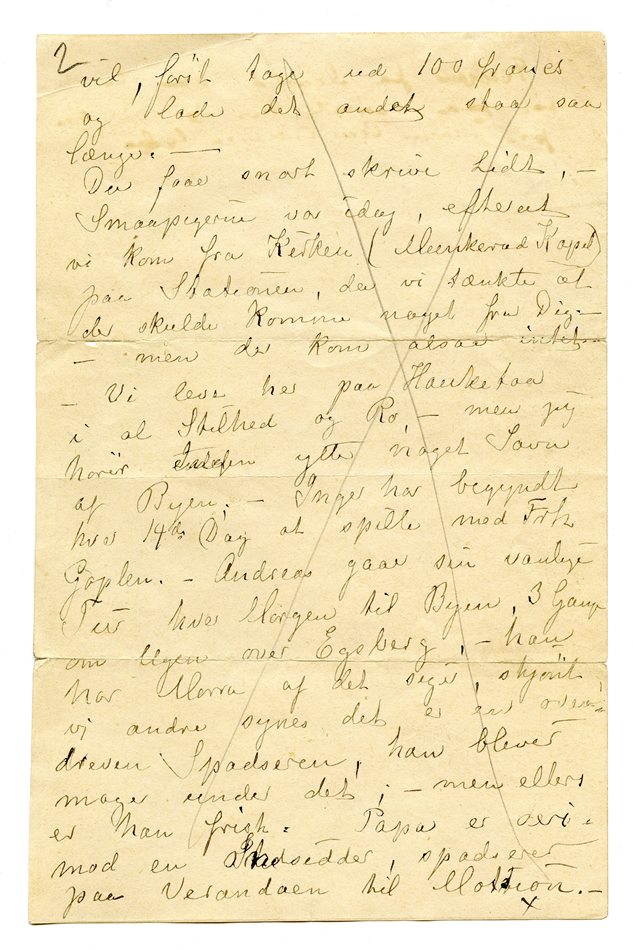 2
vil, først tage ud 100 francs
og lade det andet staa saa
længe. —
Du faar snart skrive lidt, –
Smaapigerne var idag, efterat
vi kom fra Kirken (Munkerud Kapel)
paa Stationen, da vi tænkte at
der skulde komme noget fra Dig. –
– men der kom altsaa intet –
– Vi leve her paa Hauketoa
i al Stilhed og Ro, – men jeg
hører Ingen ytre noget Savn
af Byen. – Inger har begyndt
hver 14de Dag at spille med Frk
Goplen. – Andreas gaar sin vanlige
Tur hver Morgen til Byen, 3 Gange
om Ugen over Egeberg, – han
har Morro af det siger, skjønt
vi andre synes det er en over-
dreven Spadseren, han blever
mager under det, – men ellers
er han frisk. Papa er deri-
mod en Stuesidder, spadserer
paa Verandaen til Motion. –
x